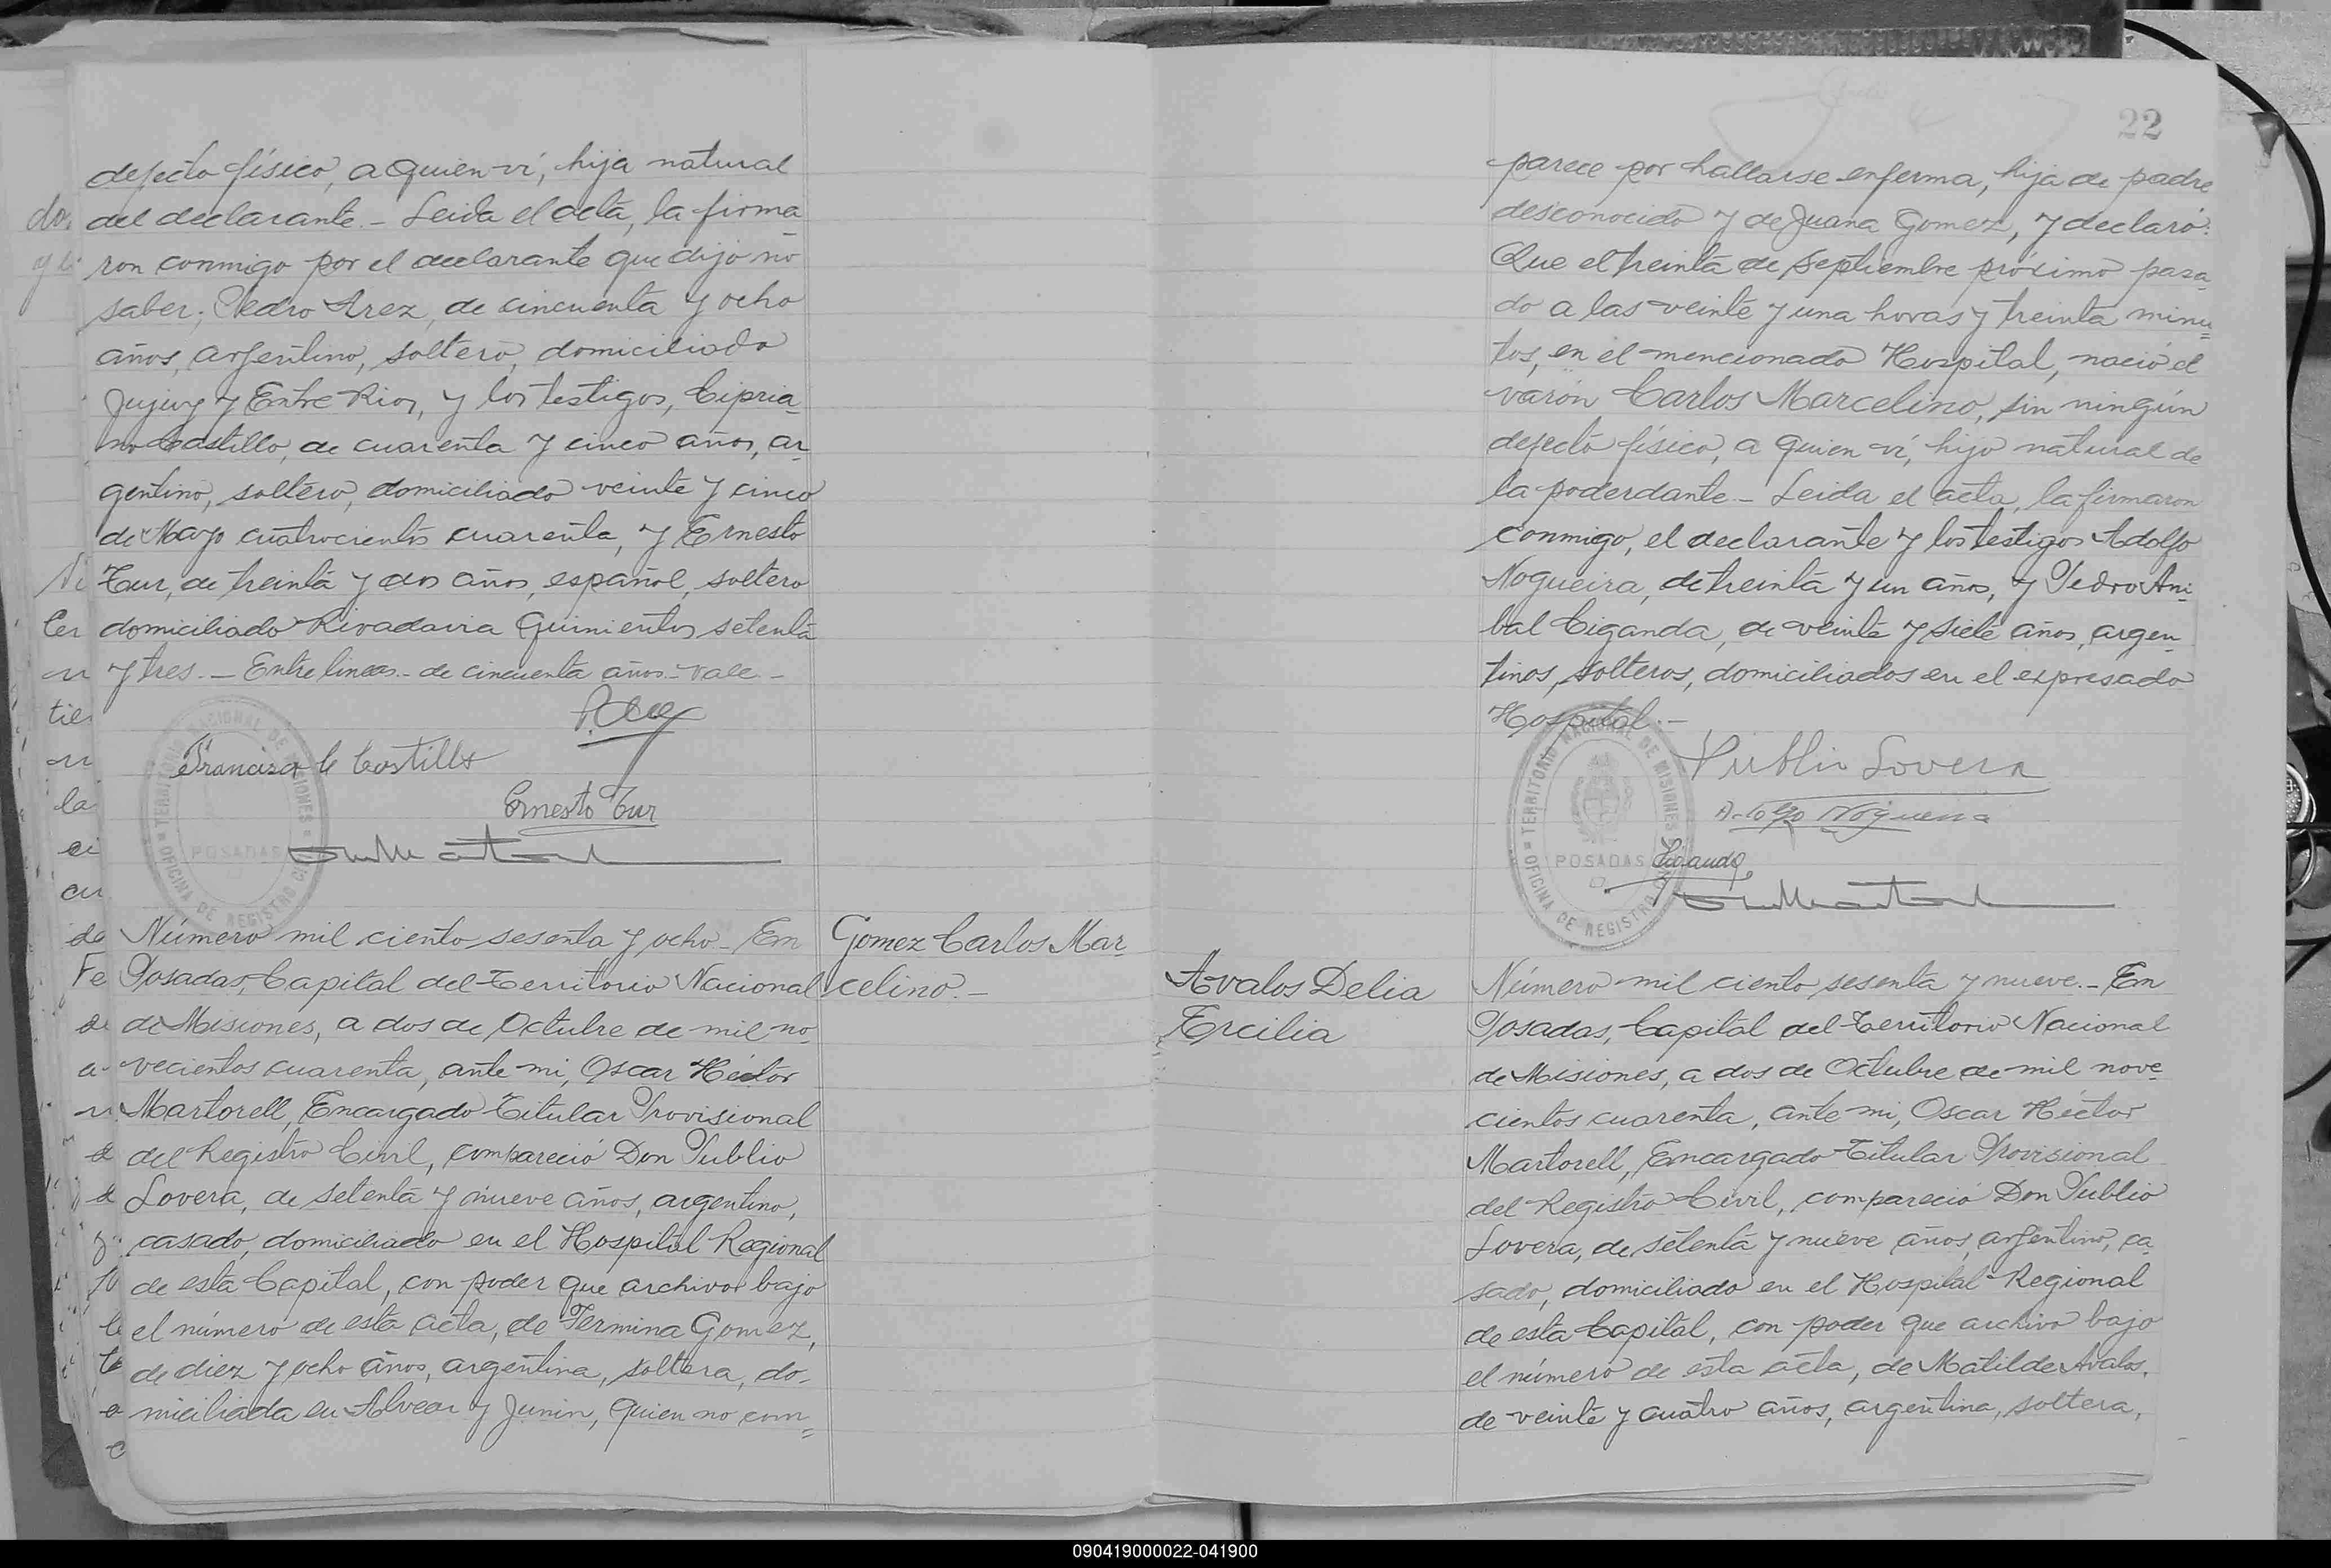 defecto físico, a quien ví, hija natural
del declarante.- Leida el acta, la firma
ron conmigo por el declarante que dijo no
saber; Pedro Arez, de cincuenta y ocho
años, argentino, soltero, domiciliado
Jujuy y Entre Rios, y los testigos, Cipria
no Castillo, de cuarenta y cinco años, ar
gentino, soltero, domiciliado veinte y cinco
de Mayo cuatrocientos cuarenta, y Ernesto
Tur, de treinta y dos años, español, soltero
domiciliado Rivadavia quinientos setenta
y tres.- Entre lineas.- de cincuenta años.- Vale.-
Francisco C Castillo
Ernesto Tur
TERRITORIO NACIONAL DE MISIONES
POSADAS
OFICINA DE REGISTRO CIVIL
Gomez Carlos Mar-
celino.-
Número mil ciento sesenta y ocho.- En
Posadas, Capital del Territorio Nacional
de Misiones, a dos de Octubre de mil no
vecientos cuarenta, ante mi, Oscar Héctor
Martorell, Encargado Titular Provisional
del Registro Civil, compareció Don Publio
Lovera, de setenta y nueve años, argentino,
casado, domiciliado en el Hospital Regional
de esta Capital, con poder que archivo bajo
el número de esta acta, de Fermina Gomez,
de diez y ocho años, argentina, soltera, do-
miciliada en Alvear y Junin, quien no com=
22
parece por hallarse enferma, hija de padre
desconocido y de Juana Gomez, y declaró:
Que el treinta de Septiembre próximo pasa
do a las veinte y una horas y treinta minu=
tos, en el mencionado Hospital, nació el
varón Carlos Marcelino, sin ningún
defecto físico, a quien ví, hijo natural de
la poderdante.- Leida el acta, la firmaron
conmigo, el declarante y los testigos Adolfo
Nogueira, de treinta y un años, y Pedro Ani=
bal Ciganda, de veinte y siete años, argen=
tinos, solteros, domiciliados en el expresado
Hospital.-
Publio Lovera
Adolfo Nogueira
Ciganda
TERRITORIO NACIONAL DE MISIONES
POSADAS
OFICINA DE REGISTRO CIVIL
Avalos Delia
Ercilia
Número mil ciento sesenta y nueve.- En
Posadas, Capital del Territorio Nacional
de Misiones, a dos de Octubre de mil nove=
cientos cuarenta, ante mi, Oscar Héctor
Martorell, Encargado Titular Provisional
del Registro Civil, compareció Don Publio
Lovera, de setenta y nueve años, argentino, ca
sado, domiciliado en el Hospital Regional
de esta Capital, con poder que archivo bajo
el número de esta acta, de Matilde Avalos,
de veinte y cuatro años, argentina, soltera,
090419000022-041900